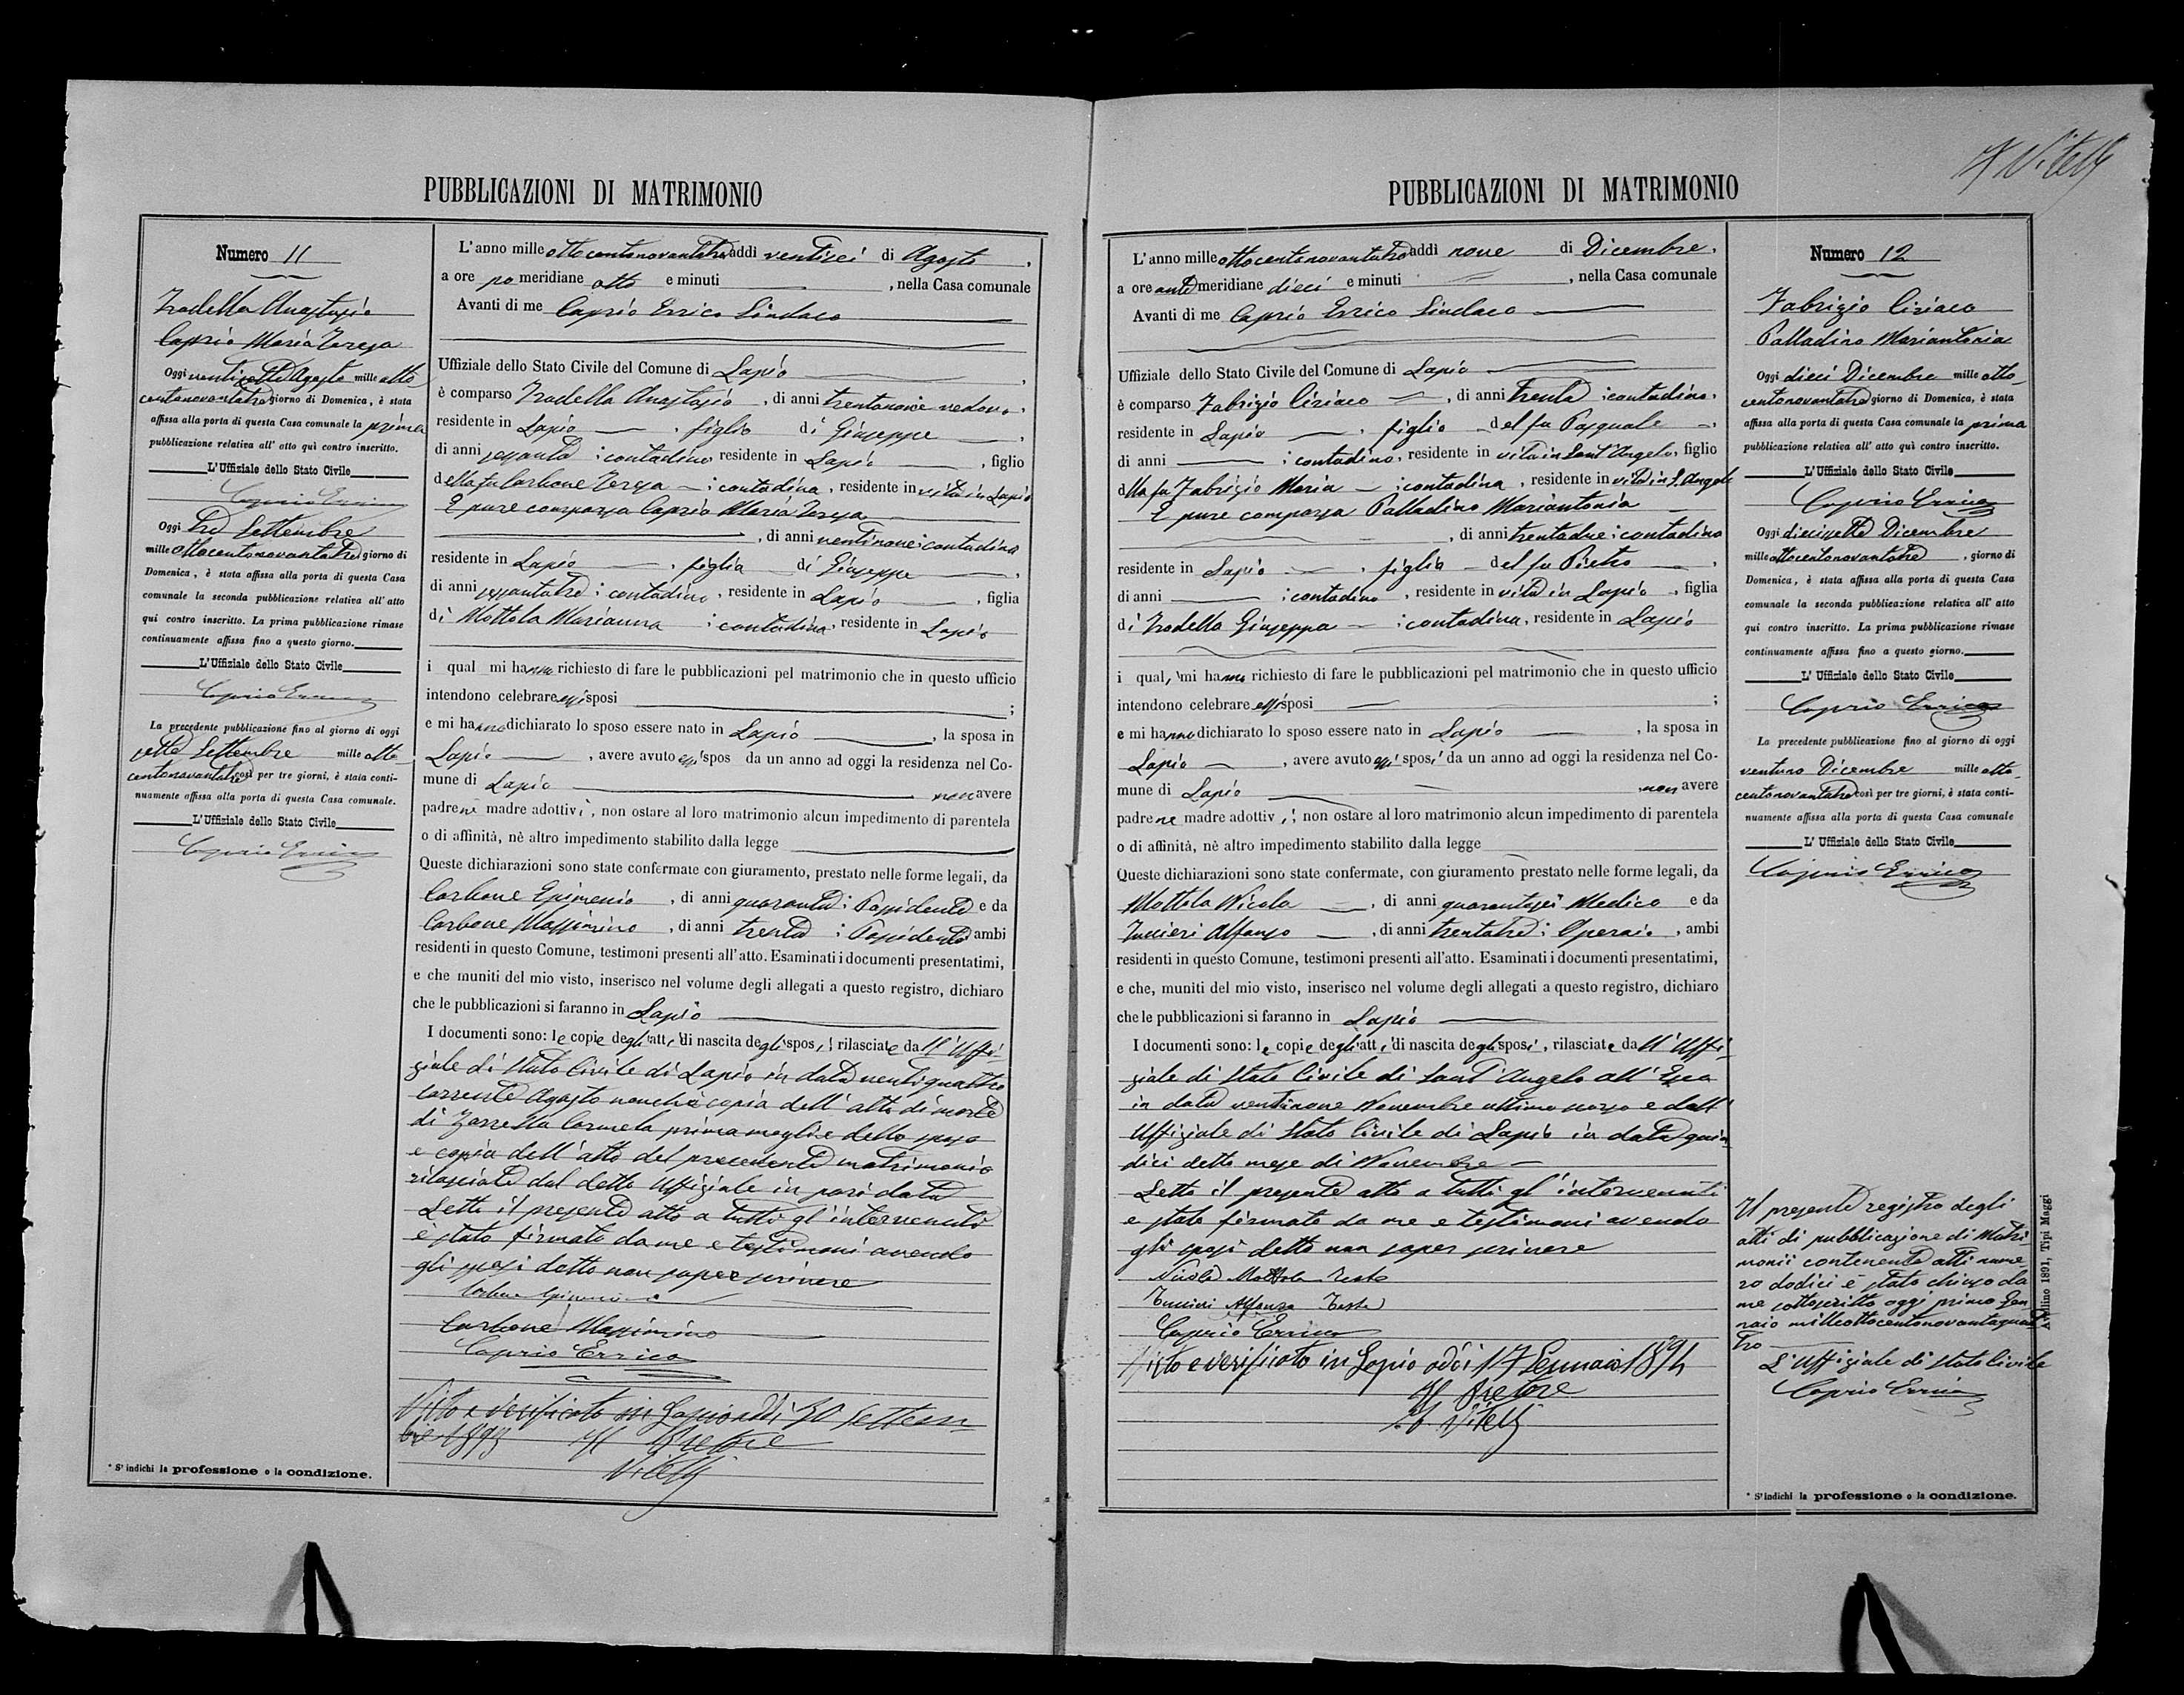 PUBBLICAZIONI DI MATRIMONIO
Numero 11
Iradella Anastasio
Caprio Maria Teresa
Oggi ventisette Agosto mille otto
centonovantatre giorno di Domenica, è stata
affissa alla porta di questa Casa comunale la prima
pubblicazione relativa all' atto quì contro inscritto.
L'Uffiziale dello Stato Civile
Caprio Errico
Oggi tre Settembre
mille ottocentonovantatre giorno di
Domenica, è stata affissa alla porta di questa Casa
comunale la seconda pubblicazione relativa all' atto
qui contro inscritto. La prima pubblicazione rimase
continuamente affissa fino a questo giorno.
L'Uffiziale dello Stato Civile
Caprio Errico
La precedente pubblicazione fino al giorno di oggi
sette Settembre mille otto
centonovantatre così per tre giorni, è stata conti-
nuamente affissa alla porta di questa Casa comunale.
L'Uffiziale dello Stato Civile
Caprio Errico
* S' indichi la professione o la condizione.
L'anno mille ottocentonovantatre addì ventisei di Agosto,
a ore po meridiane otto e minuti , nella Casa comunale
Avanti di me Caprio Errico Sindaco
Uffiziale dello Stato Civile del Comune di Lapio
è comparso Iradella Anastasio, di anni trentanove vedovo,
residente in Lapio, figlio di Giuseppe,
di anni sessanta : contadino residente in Lapio, figlio
della fu Carbone Teresa : contadina, residente in vita in Lapio
E pure comparsa Caprio Maria Teresa
, di anni ventinove : contadina
residente in Lapio, figlia di Giuseppe,
di anni sessantatre : contadino, residente in Lapio, figlia
di Mottola Marianna : contadina, residente in Lapio
i qual mi hanno richiesto di fare le pubblicazioni pel matrimonio che in questo ufficio
intendono celebrare essi sposi ;
e mi hanno dichiarato lo sposo essere nato in Lapio, la sposa in
Lapio, avere avuto essi spos da un anno ad oggi la residenza nel Co-
mune di Lapio non avere
padre nè madre adottivi, non ostare al loro matrimonio alcun impedimento di parentela
o di affinità, nè altro impedimento stabilito dalla legge
Queste dichiarazioni sono state confermate con giuramento, prestato nelle forme legali, da
Carbone Epimenio, di anni quaranta : Possidente e da
Carbone Massimino, di anni trenta : Possidente ambi
residenti in questo Comune, testimoni presenti all'atto. Esaminati i documenti presentatimi,
e che muniti del mio visto, inserisco nel volume degli allegati a questo registro, dichiaro
che le pubblicazioni si faranno in Lapio
I documenti sono: le copie degli atti di nascita degli sposi, rilasciate dall'Uffi-
ziale di Stato Civile di Lapio in data ventiquattro
corrente Agosto nonchè copia dell'atto di morte
di Zarrella Carmela prima moglie dello sposo
e copia dell'atto del precedente matrimonio
rilasciate dal detto Uffiziale in pari data
Letto il presente atto a tutti gl'intervenuti
è stato firmato da me e testimoni avendo
gli sposi detto non saper scrivere
Carbone Epimenio
Carbone Massimino
Caprio Errico
Visto e verificato in Lapio addì 30 Settem-
bre 1893 Il Pretore
Vitelli
V Vitelli
PUBBLICAZIONI DI MATRIMONIO
L'anno mille ottocentonovantatre addì nove di Dicembre,
a ore anti meridiane dieci e minuti , nella Casa comunale
Avanti di me Caprio Errico Sindaco
Uffiziale dello Stato Civile del Comune di Lapio
è comparso Fabrizio Ciriaco, di anni trenta : contadino,
residente in Lapio, figlio del fu Pasquale,
di anni : contadino, residente in vita in Sant'Angelo, figlio
della fu Fabrizio Maria : contadina, residente in vita in S. Angelo
E pure comparsa Palladino Mariantonia
, di anni trentadue : contadina
residente in Lapio, figlia del fu Pietro,
di anni : contadino, residente in vita in Lapio, figlia
di Iradella Giuseppa : contadina, residente in Lapio
i quali mi hanno richiesto di fare le pubblicazioni pel matrimonio che in questo ufficio
intendono celebrare essi sposi ;
e mi hanno dichiarato lo sposo essere nato in Lapio, la sposa in
Lapio, avere avuto essi sposi da un anno ad oggi la residenza nel Co-
mune di Lapio non avere
padre ne madre adottivi, non ostare al loro matrimonio alcun impedimento di parentela
o di affinità, nè altro impedimento stabilito dalla legge
Queste dichiarazioni sono state confermate, con giuramento prestato nelle forme legali, da
Mottola Nicola, di anni quarantasei Medico e da
Tuccieri Alfonso, di anni trentatre : Operaio, ambi
residenti in questo Comune, testimoni presenti all'atto. Esaminati i documenti presentatimi,
e che, muniti del mio visto, inserisco nel volume degli allegati a questo registro, dichiaro
che le pubblicazioni si faranno in Lapio
I documenti sono: le copie degli atti di nascita degli sposi, rilasciate dall'Uffi-
ziale di Stato Civile di Sant'Angelo all'Esca
in data ventinove Novembre ultimo scorso e dall'
Uffiziale di Stato Civile di Lapio in data quin-
dici detto mese di Novembre
Letto il presente atto a tutti gl'intervenuti
e stato firmato da me e testimoni avendo
gli sposi detto non saper scrivere
Nicola Mottola Teste
Tuccieri Alfonso Teste
Caprio Errico
Visto e verificato in Lapio addì 17 Gennaio 1894
Il Pretore
V. Vitelli
Numero 12
Fabrizio Ciriaco
Palladino Mariantonia
Oggi dieci Dicembre mille otto-
centonovantatre giorno di Domenica, è stata
affissa alla porta di questa Casa comunale la prima
pubblicazione relativa all' atto quì contro inscritto.
L'Uffiziale dello Stato Civile
Caprio Errico
Oggi diecisette Dicembre
mille ottocentonovantatre, giorno di
Domenica, è stata affissa alla porta di questa Casa
comunale la seconda pubblicazione relativa all' atto
qui contro inscritto. La prima pubblicazione rimase
continuamente affissa fino a questo giorno.
L' Uffiziale dello Stato Civile
Caprio Errico
La precedente pubblicazione fino al giorno di oggi
ventuno Dicembre mille otto-
centonovantatre così per tre giorni, è stata conti-
nuamente affissa alla porta di questa Casa comunale
L' Uffiziale dello Stato Civile
Caprio Errico
Il presente registro degli
atti di pubblicazione di Matri-
monii contenente atti nume-
ro dodici è stato chiuso da
me sottoscritto oggi primo Gen-
naio milleottocentonovantaquat
tro
L'Uffiziale di Stato Civile
Caprio Errico
Avellino 1891, Tipi Maggi
* S' indichi la professione o la condizione.